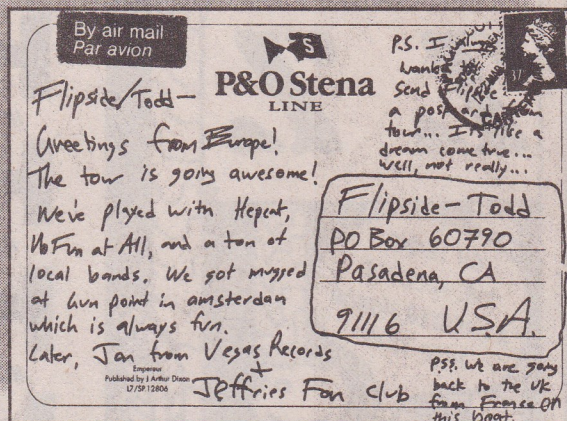 By air mail
Par avion
P&O Stena
LINE
Flipside/Todd-
Greetings from Europe!
The tour is going awesome!
We've played with Hepcat,
No Fun at All, and a ton of
local bands. We got mugged
at Gun point in amsterdam
which is always fun.
Later, Jon from Vegas Records
+
Jeffries Fan Club
Emperous
Published by J Arthur Dixon
L7/SP.12806
P.S. I
wanted to
send Flipside
a postcard from
tour... It's like a
dream come true...
well, not really...
Flipside-Todd
PO Box 60790
Pasadena, CA
91116 U.S.A.
PSS. We are going
back to the UK
from France on
this boat.